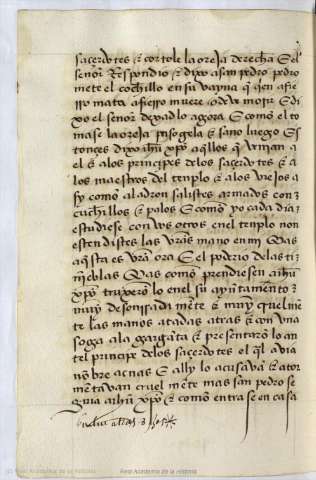 sacerdotes & cortole la oreja derecha E el
señor Respondio & dixo a san pedro pedro
mete el cochillo en su vayna q̃ qen a fie
rro mata a fierro muere o deve morir E di
xo el señor dexadlo agora E como el to
mase la oreja pusogela & sano luego Es
tonces dixo ihũ xp̃o aq̃llos q̃ venian a
el & a los principes delos sacerdotes & a
los maestros del templo & alos viejos a
sy como a ladron salistes armados con
cuchillos & palos E como yo cada dia
estudiese con vos otros enel templo non
estendistes las vr̃as mano en mi Mas
aq̃sta es vr̃a ora E el podrio delas ti
nieblas Mas como prendiesen a ihũ
xp̃o truxeron lo enel su ayuntamẽto
muy desonrrada mẽte & muy cruel mẽ
te las manos atadas atras & con vna
soga ala gargãta & presentarõ lo an
tel principe delos sacerdotes el q̃l avia
nõbre acnas E ally lo acusavã & ator
mẽtavan cruel mẽte mas san pedro se
guia a ihũ xp̃o & como entrase en casa
Real Academia de la Historia